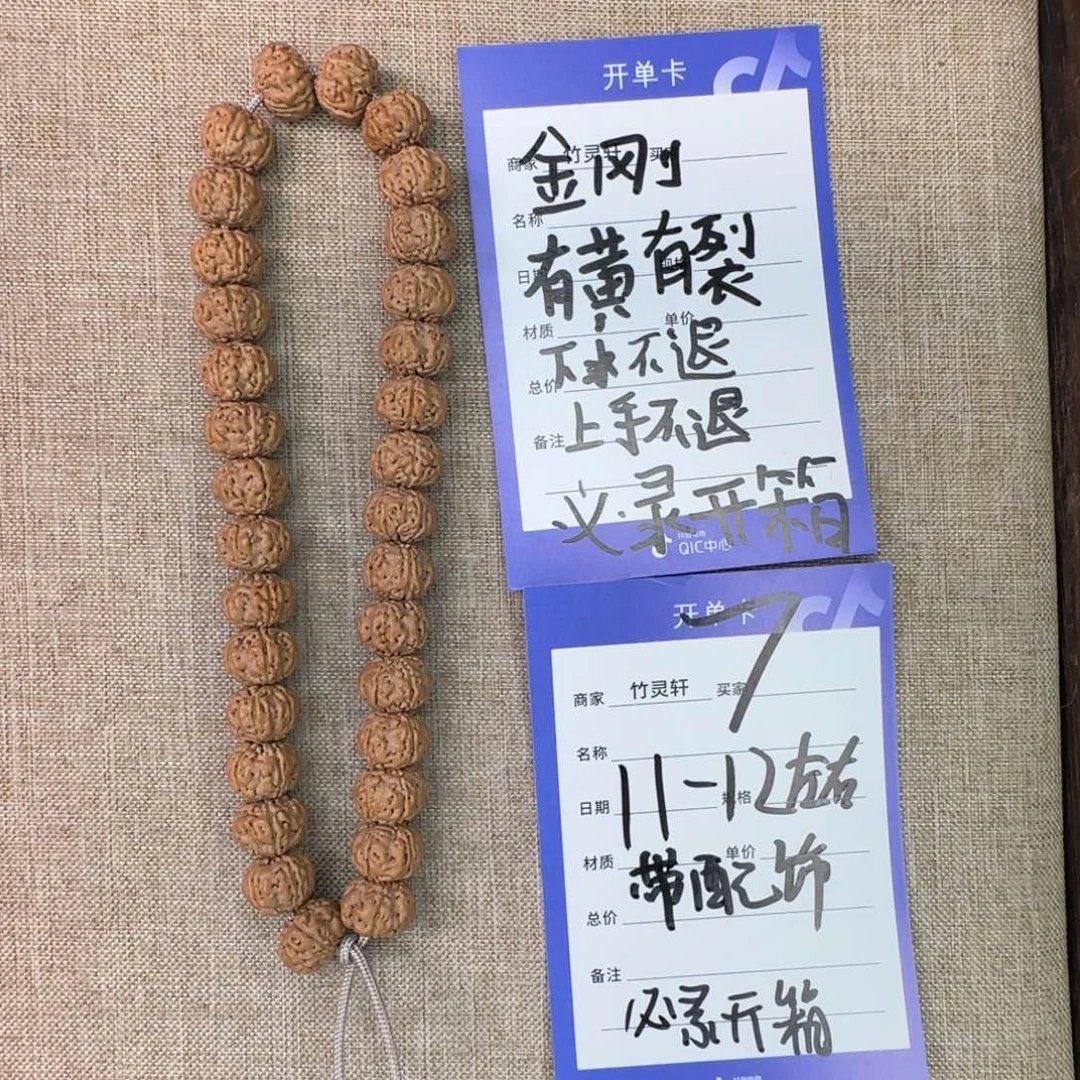 开单卡
商家 竹灵轩 买
金刚
名称
有黄有裂
日期 规格
材质 单价
下水不退
总价
上手不退
备注
必录开箱
QIC中心
开单卡
7
商家 竹灵轩 买家
名称
11-12左右
日期 规格
材质 单价
带配饰
总价
备注
必录开箱